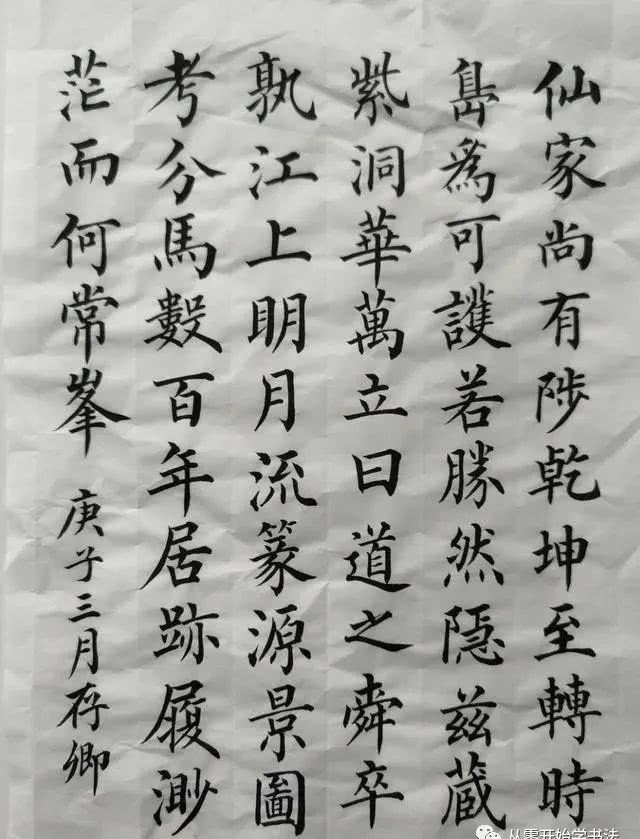 仙家尚有陟乾坤至轉時
島為可護若勝然隱茲蔵
紫洞華萬立曰道之舜卒
孰江上明月流篆源景圖
考分馬數百年居跡履渺
茫而何常峯 庚子三月存卿
从零开始学书法